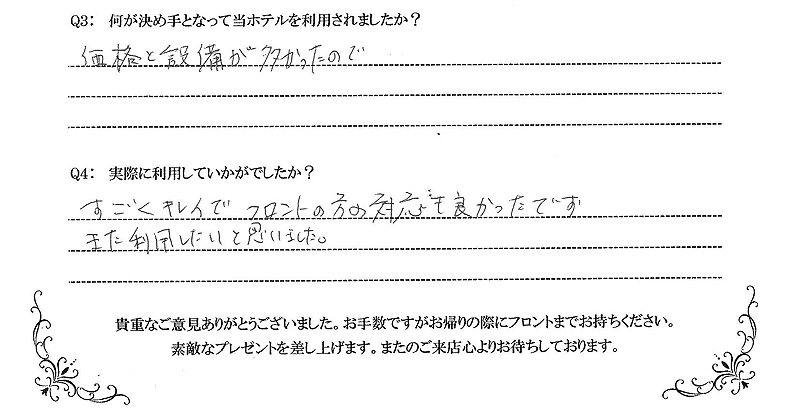 Q3： 何が決め手となって当ホテルを利用されましたか？
価格と設備が多かったので
Q4： 実際に利用していかがでしたか？
すごくキレイで フロントの方の対応も良かったです
また利用したいと思いました。
貴重なご意見ありがとうございました。お手数ですがお帰りの際にフロントまでお持ちください。
素敵なプレゼントを差し上げます。またのご来店心よりお待ちしております。